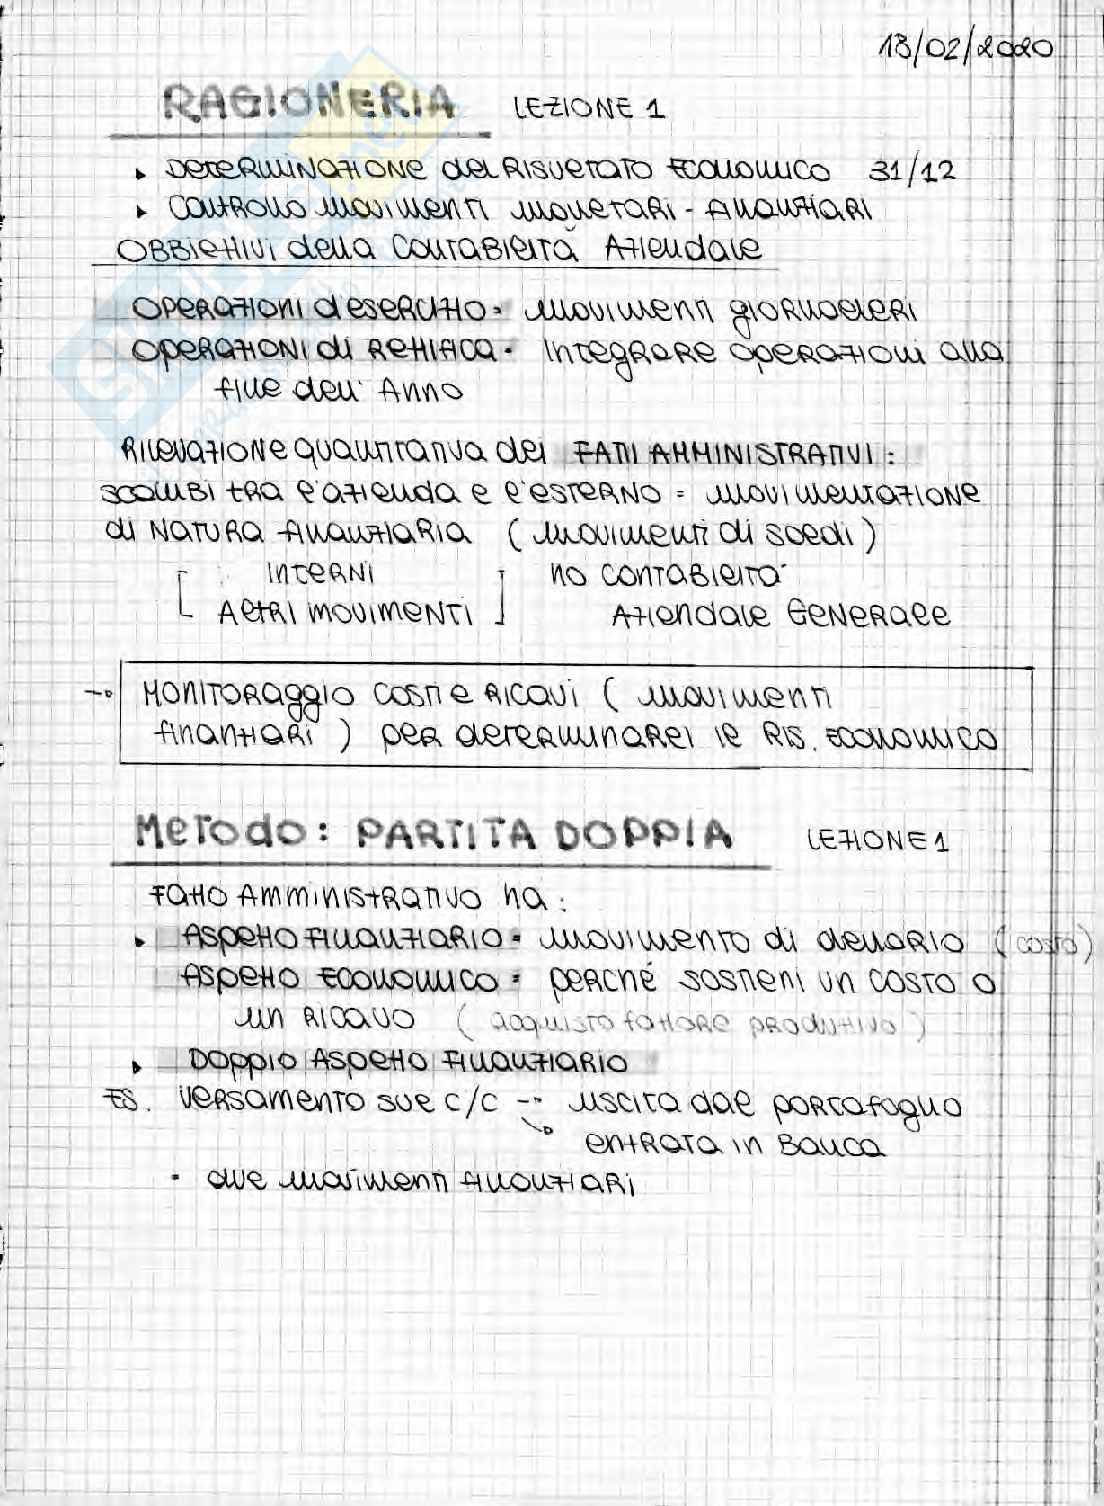 13/02/2020
RAGIONERIA LEZIONE 1
▸ DETERMINAZIONE del RISULTATO ECONOMICO 31/12
▸ CONTROLLO MOVIMENTI MONETARI - FINANZIARI
OBBIETTIVI della CONTABILITÀ AZIENDALE
OPERAZIONI d'ESERCIZIO = MOVIMENTI giORNALIERI
OPERAZIONI di RETTIFICA = INTEGRARE OPERAZIONI alla
fine dell' Anno
RILEVAZIONE QUANTITATIVA dei FATTI AMMINISTRATIVI :
SCAMBI TRA l'AZIENDA e l'ESTERNO = MOVIMENTAZIONE
di NATURA FINANZIARIA ( MOVIMENTI di SOLDI )
[ INTERNI ] NO CONTABILITA'
[ ALTRI MOVIMENTI ] AZIENDALE GENERALE
→ MONITORAGGIO COSTI e RICAVI ( MOVIMENTI
FINANZIARI ) PER determinarei le RIS. ECONOMICO
METODO : PARTITA DOPPIA LEZIONE 1
FATTO AMMINISTRATIVO ha :
▸ ASPETTO FINANZIARIO = MOVIMENTO di denaRIO ( costo )
ASPETTO ECONOMICO = PERCHÉ SOSTIENI UN COSTO O
UN RICAVO ( acquisto fattore produttivo )
▸ DOPPIO ASPETTO FINANZIARIO
ES. VERSAMENTO SUL C/C -- USCITA dal PORTAFOGLIO
→ ENTRATA IN BANCA
• due MOVIMENTI FINANZIARI